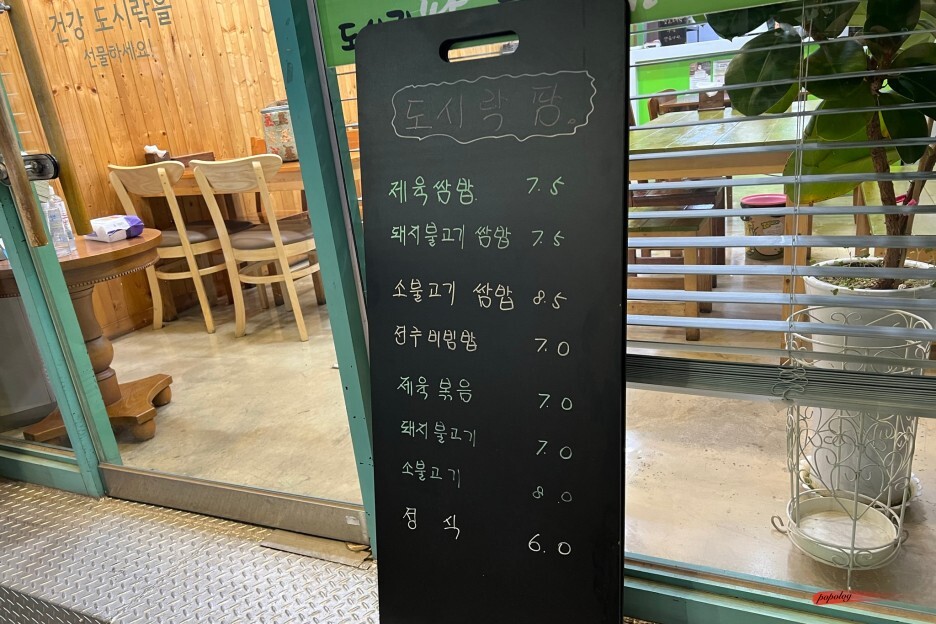 건강 도시락을
선물하세요.
도시락
도시락 팜.
제육쌈밥. 7.5
돼지불고기 쌈밥 7.5
소불고기 쌈밥 8.5
전주비빔밥 7.0
제육볶음 7.0
돼지불고기 7.0
소불고기 8.0
정 식 6.0
popolog